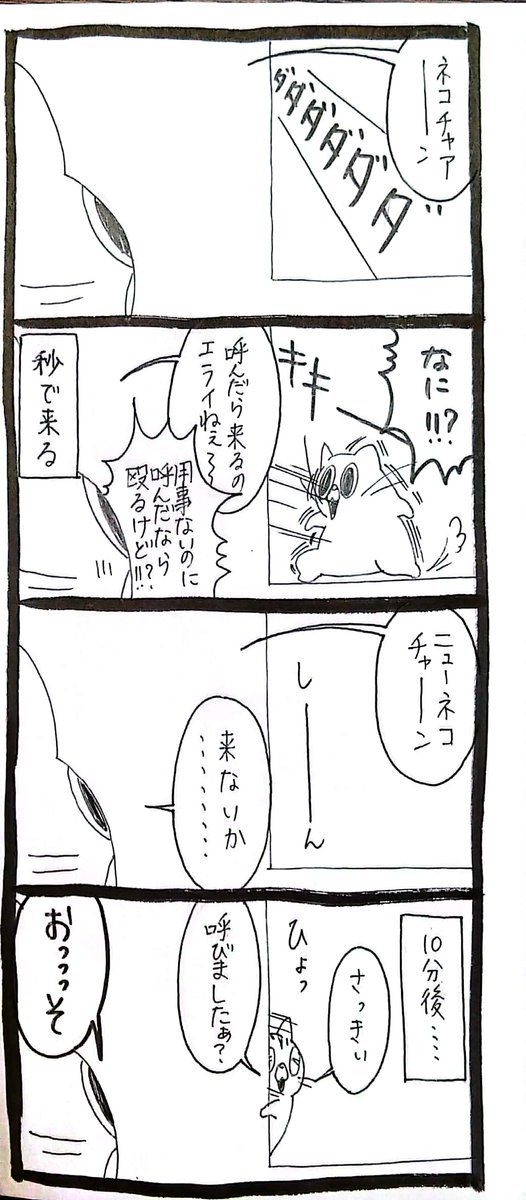 ネコチャア
ーーン
ダダダダダダダ
なに!!?
キキ
呼んだら来るの
エライねぇ〜
用事ないのに
呼んだなら
殴るけど!!?
秒で来る
ニューネコ
チャーーン
しーーん
来ないか
‥‥‥‥
10分後‥‥
さっきぃ
ひょっ
呼びましたぁ?
おっっっそ